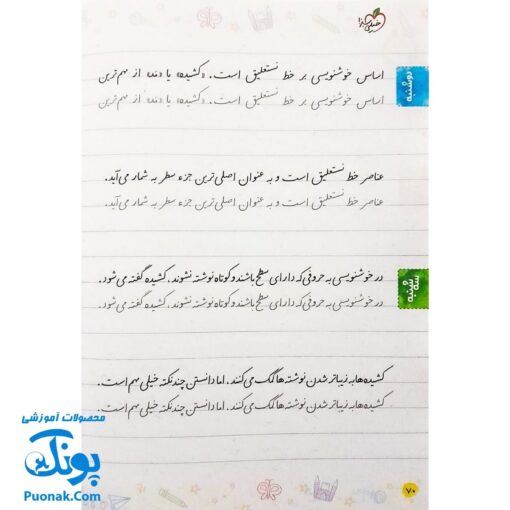 خیلی سبز
دوشنبه
اساس خوشنویسی بر خط نستعلیق است. «کشیده» یا «مد» از مهم‌ترین
اساس خوشنویسی بر خط نستعلیق است. «کشیده» یا «مد» از مهم‌ترین
عناصر خط نستعلیق است و به عنوان اصلی‌ترین جزء سطر به شمار می‌آید.
عناصر خط نستعلیق است و به عنوان اصلی‌ترین جزء سطر به شمار می‌آید.
سه شنبه
در خوشنویسی به حروفی که دارای سطح باشند و کوتاه نوشته نشوند، کشیده گفته می‌شود.
در خوشنویسی به حروفی که دارای سطح باشند و کوتاه نوشته نشوند، کشیده گفته می‌شود.
کشیده‌ها به زیباتر شدن نوشته‌ها کمک می‌کنند. اما دانستن چند نکته خیلی مهم است.
کشیده‌ها به زیباتر شدن نوشته‌ها کمک می‌کنند. اما دانستن چند نکته خیلی مهم است.
۷۰
محصولات آموزشی
پونک
Puonak.Com